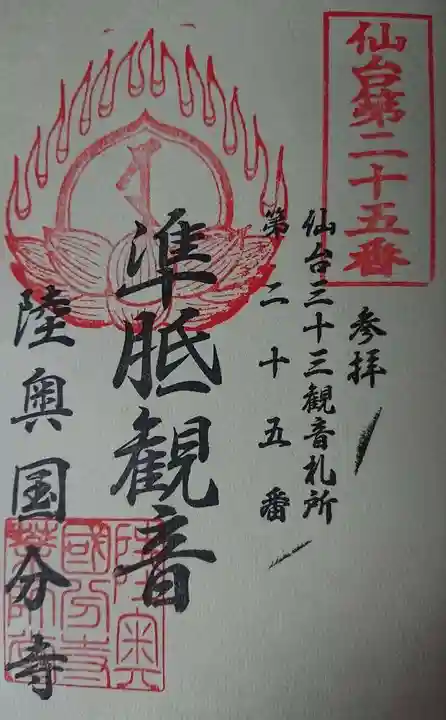 仙台第二十五番
参拝
仙台三十三観音札所
第二十五番
準胝観音
陸奥国分寺
陸奥
國分寺